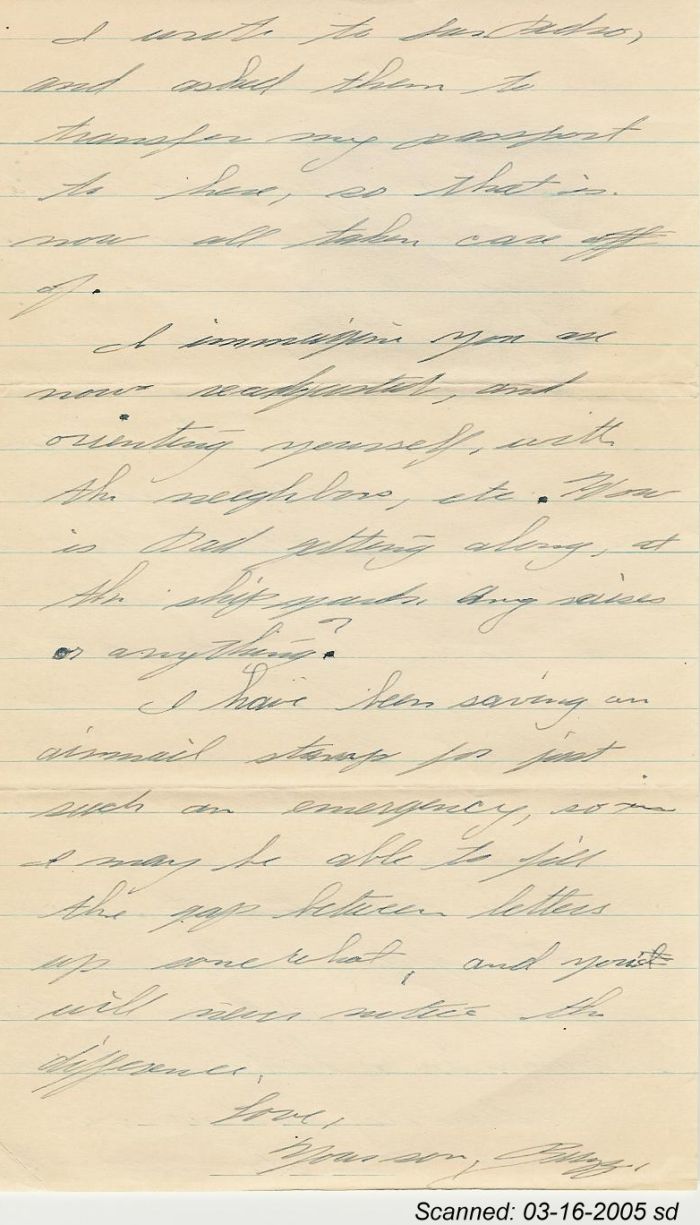 I wrote to San Pedro,
and asked them to
transfer my passport
to here, so that is
now all taken care off
of.
I immagine you are
now readjusted, and
orienting yourself, with
the neeghbors, etc. How
is Dad getting along, at
the ship yards. Any raises
or anything?
I have been saving an
airmail stamp for just
such an emergency, so
I may be able to fill
the gap between letters
up somewhat, and you
will never notice the
difference.
Love,
Your son, Buzz.
Scanned: 03-16-2005 sd